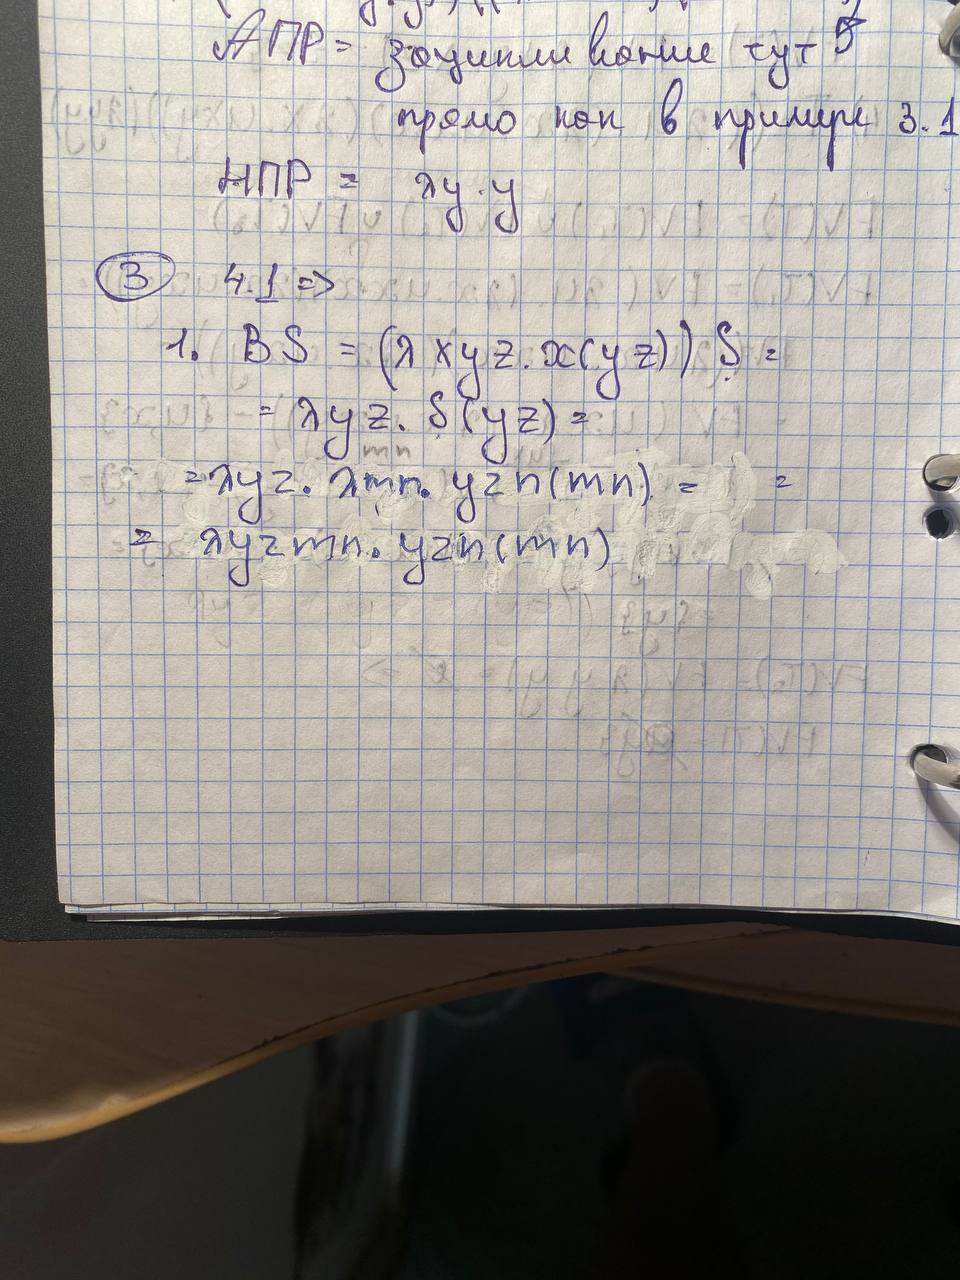 АПР = зацикливание тут
прямо как в примере 3.1
НПР = λy.y
3 4.1 =>
1. BS = (λxyz.x(yz)) S =
= λyz. S(yz) =
mn
= λyz. λmn. yzn(mn) = =
= λyzmn. yzn(mn)